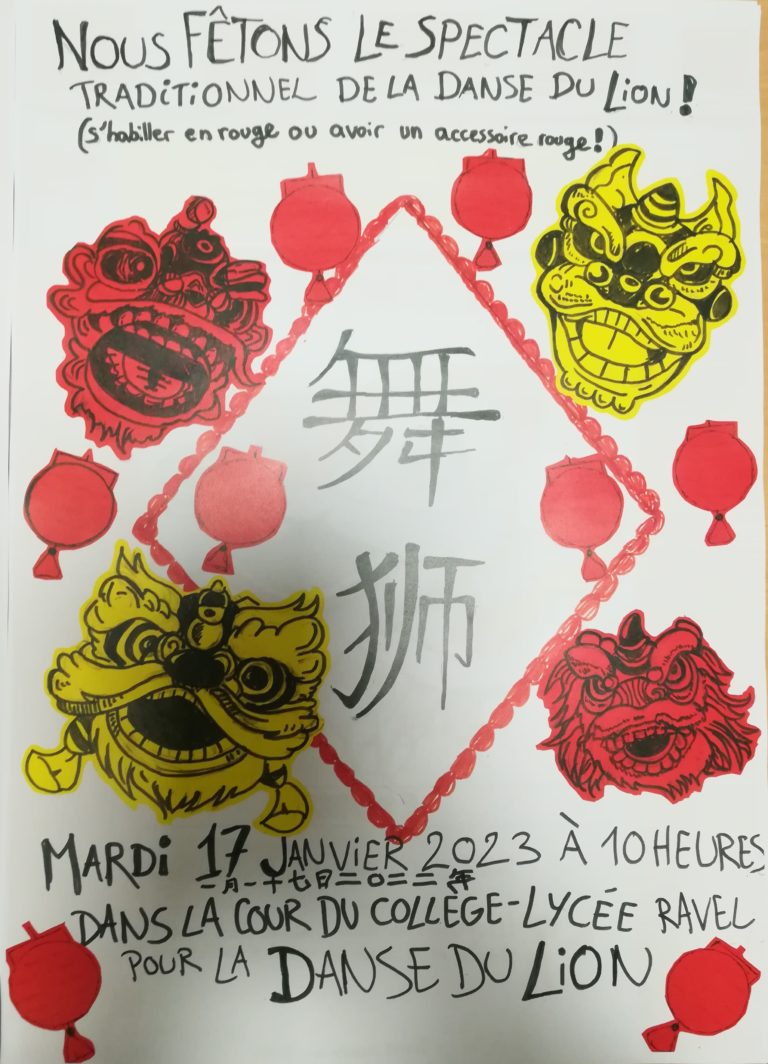 NOUS FÊTONS LE SPECTACLE
TRADITIONNEL DE LA DANSE DU LION !
(s'habiller en rouge ou avoir un accessoire rouge !)
舞
狮
MARDI 17 JANVIER 2023 À 10 HEURES
一月一十七日二〇二二年
DANS LA COUR DU COLLÈGE-LYCÉE RAVEL
POUR LA DANSE DU LION